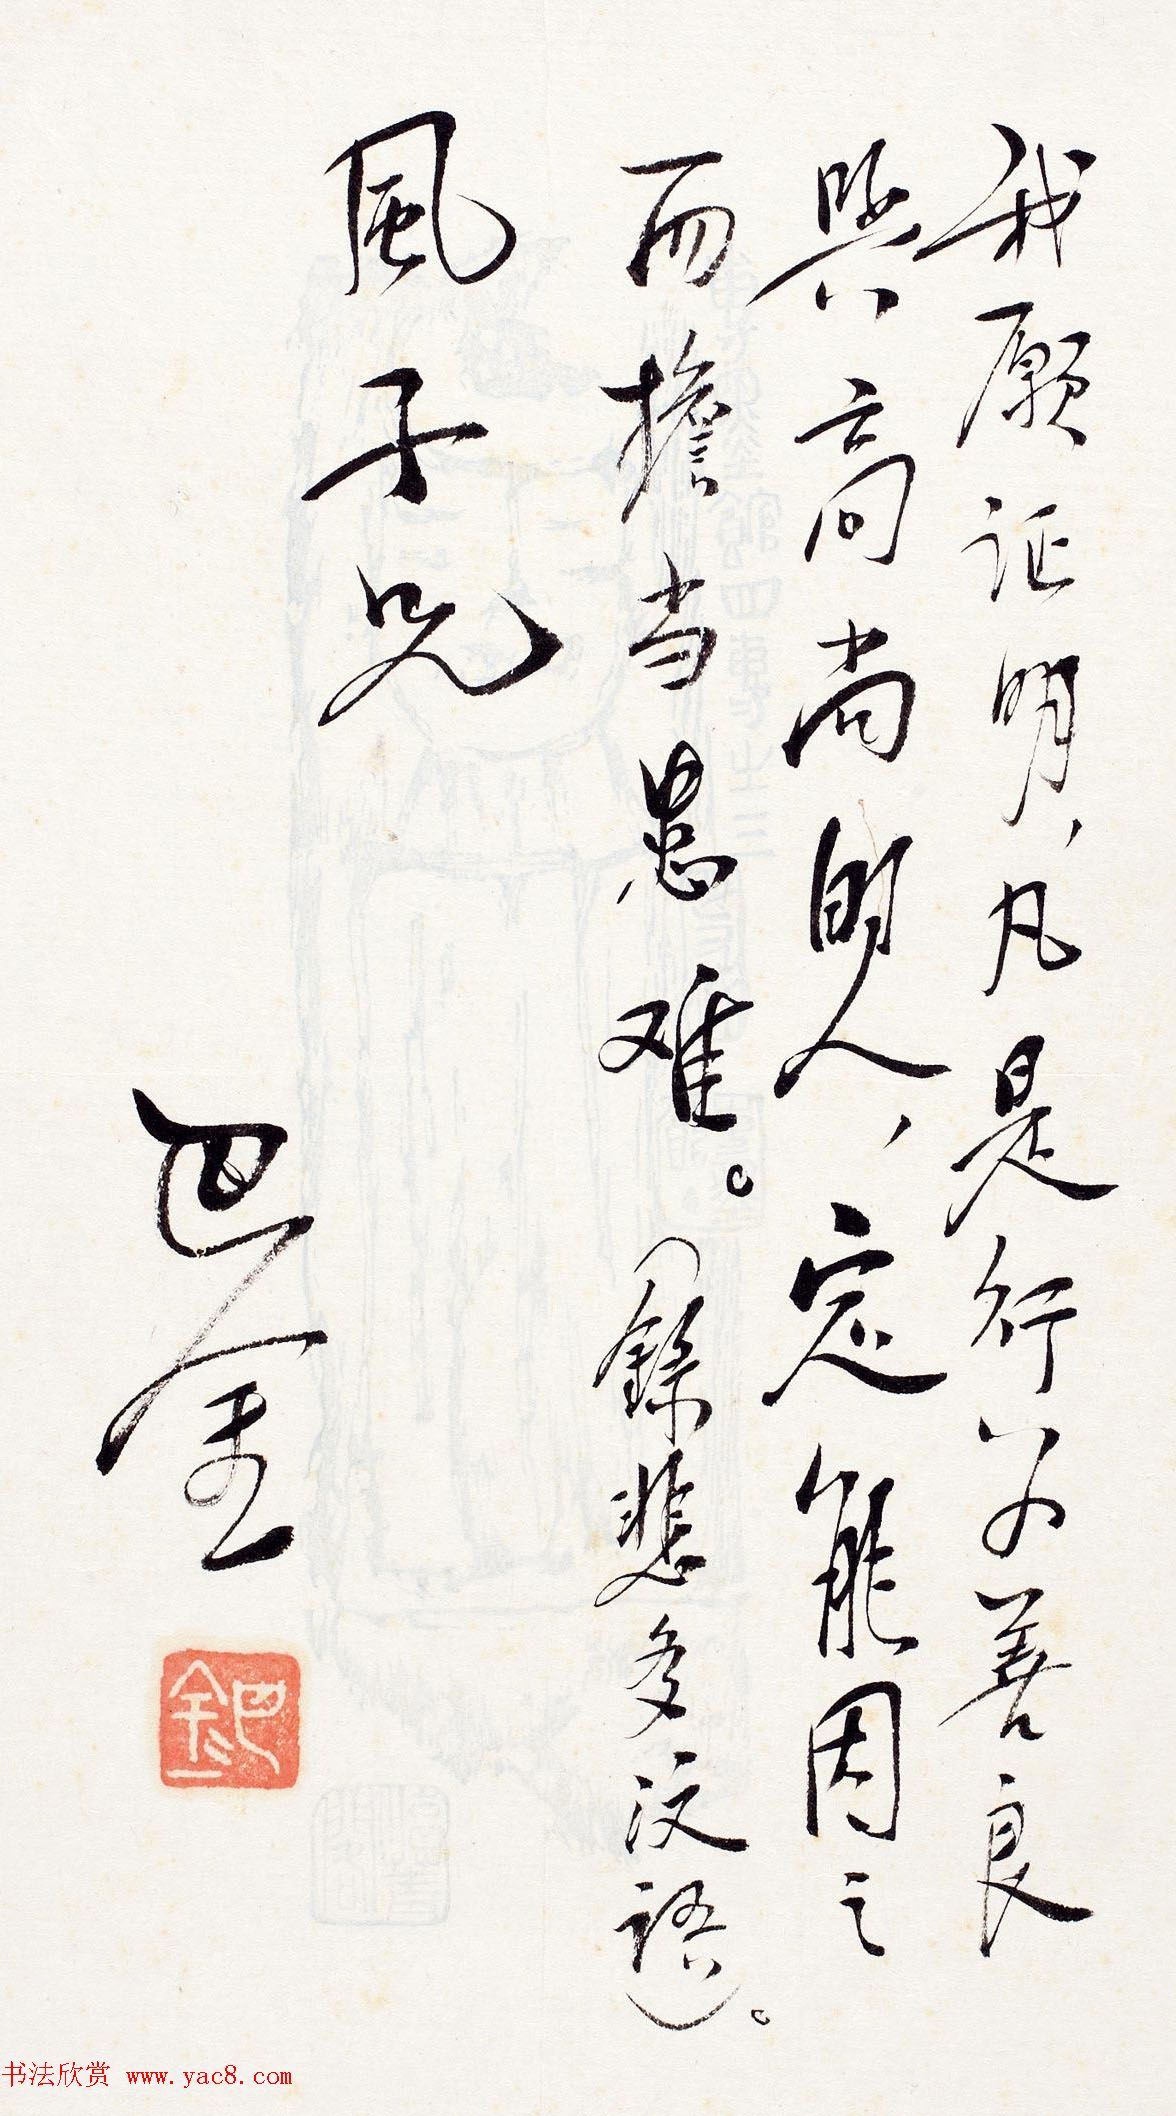 我願证明，凡是行为善良
與高尚的人，定能因之
而擔当患难。（錄悲多汶语）。
風子兄
巴金
巴金
书法欣赏 www.yac8.com